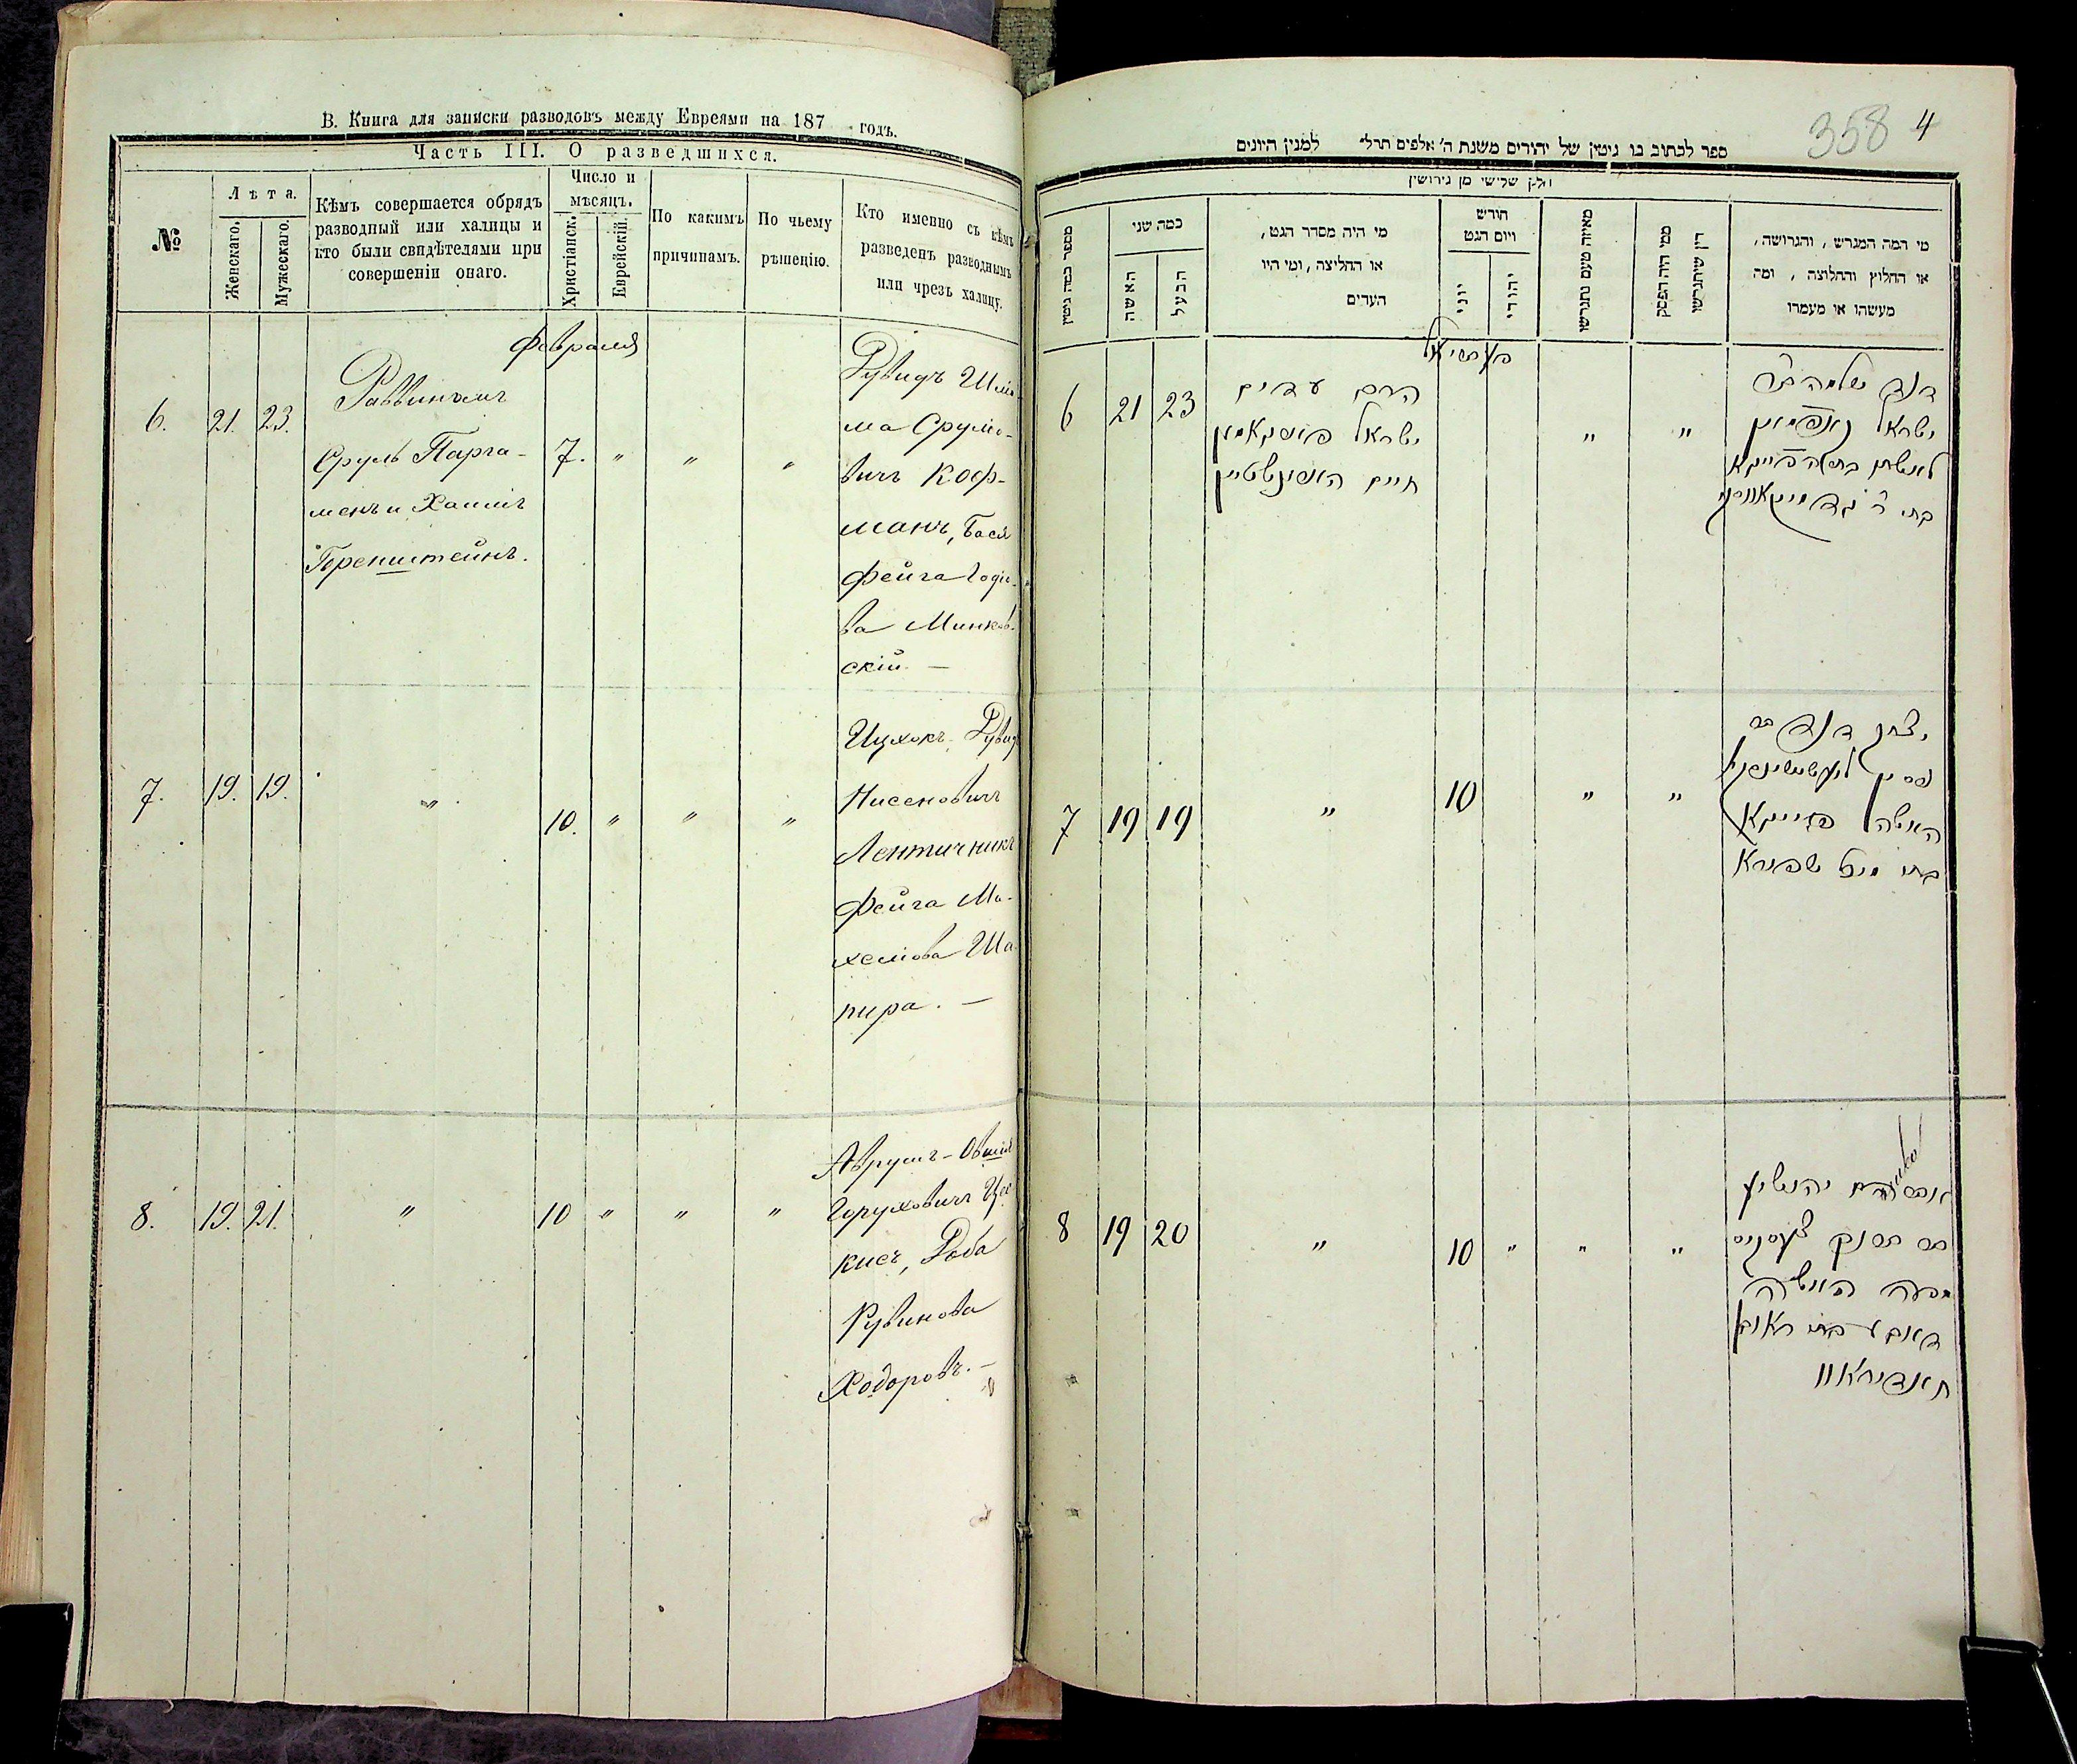 В. Книга для записки разводовъ между Евреями на 187 годъ.
Часть III. О разведшихся.
№
Лѣта.
Женскаго.
Мужескаго.
Кѣмъ совершается обрядъ
разводный или халицы и
кто были свидѣтелями при
совершеніи онаго.
Число и
мѣсяцъ.
Христіанск.
Еврейскій.
По какимъ
причинамъ.
По чьему
рѣшенію.
Кто именно съ кѣмъ
разведенъ разводнымъ
или чрезъ халицу.
Февраля
6. 21. 23.
Раввиномъ
Сруль Парга-
менъ и Хаимъ
Горенштейнъ.
7. " " "
Дувидъ Шлио-
ма Срулио-
вичъ Коф-
манъ, Бася
Фейга Годіо-
ва Минков-
скій. —
7. 19. 19. " 10. " " "
Ицхокъ-Дувидъ
Нисеновичъ
Лентичникъ
Фейга Ми-
хеліова Ша
пира. —
8. 19. 21. " 10 " " "
Аврумъ-Овшія
Горуховичъ Це
кисъ, Доба
Рувинова
Ходоровъ. —
358 4
ספר לכתוב בו גיטין של יהודים משנת ה' אלפים תרל" למנין היונים
חלק שלישי מן גירושין
מספר כמה גיטין
כמה שני
האשה
הבעל
מי היה מסדר הגט,
או החליצה, ומי היו
העדים
חודש
ויום הגט
יוני
יהודי
מאיזה טעם נתגרשו
ממי היה הפסק
דין שיתגרשו
מי המה המגרש, והגרושה,
או החלוץ והחלוצה, ומה
מעשהו או מעמדו
6 21 23
הרב עדים
ישראל
חיים
" "
דוד שלמה בר
ישראל קאפמאן
לאשתו בתיה פייגא
בתי ר' גד מינקאווסקי
7 19 19 " 10 " "
יצחק דוד בר
ניסן
האשה פייגא
בתי מיכל שפירא
8 19 20 " 10 " " "
יהושיע
האשה
דאבע בתי ראובן
חאדיראוו